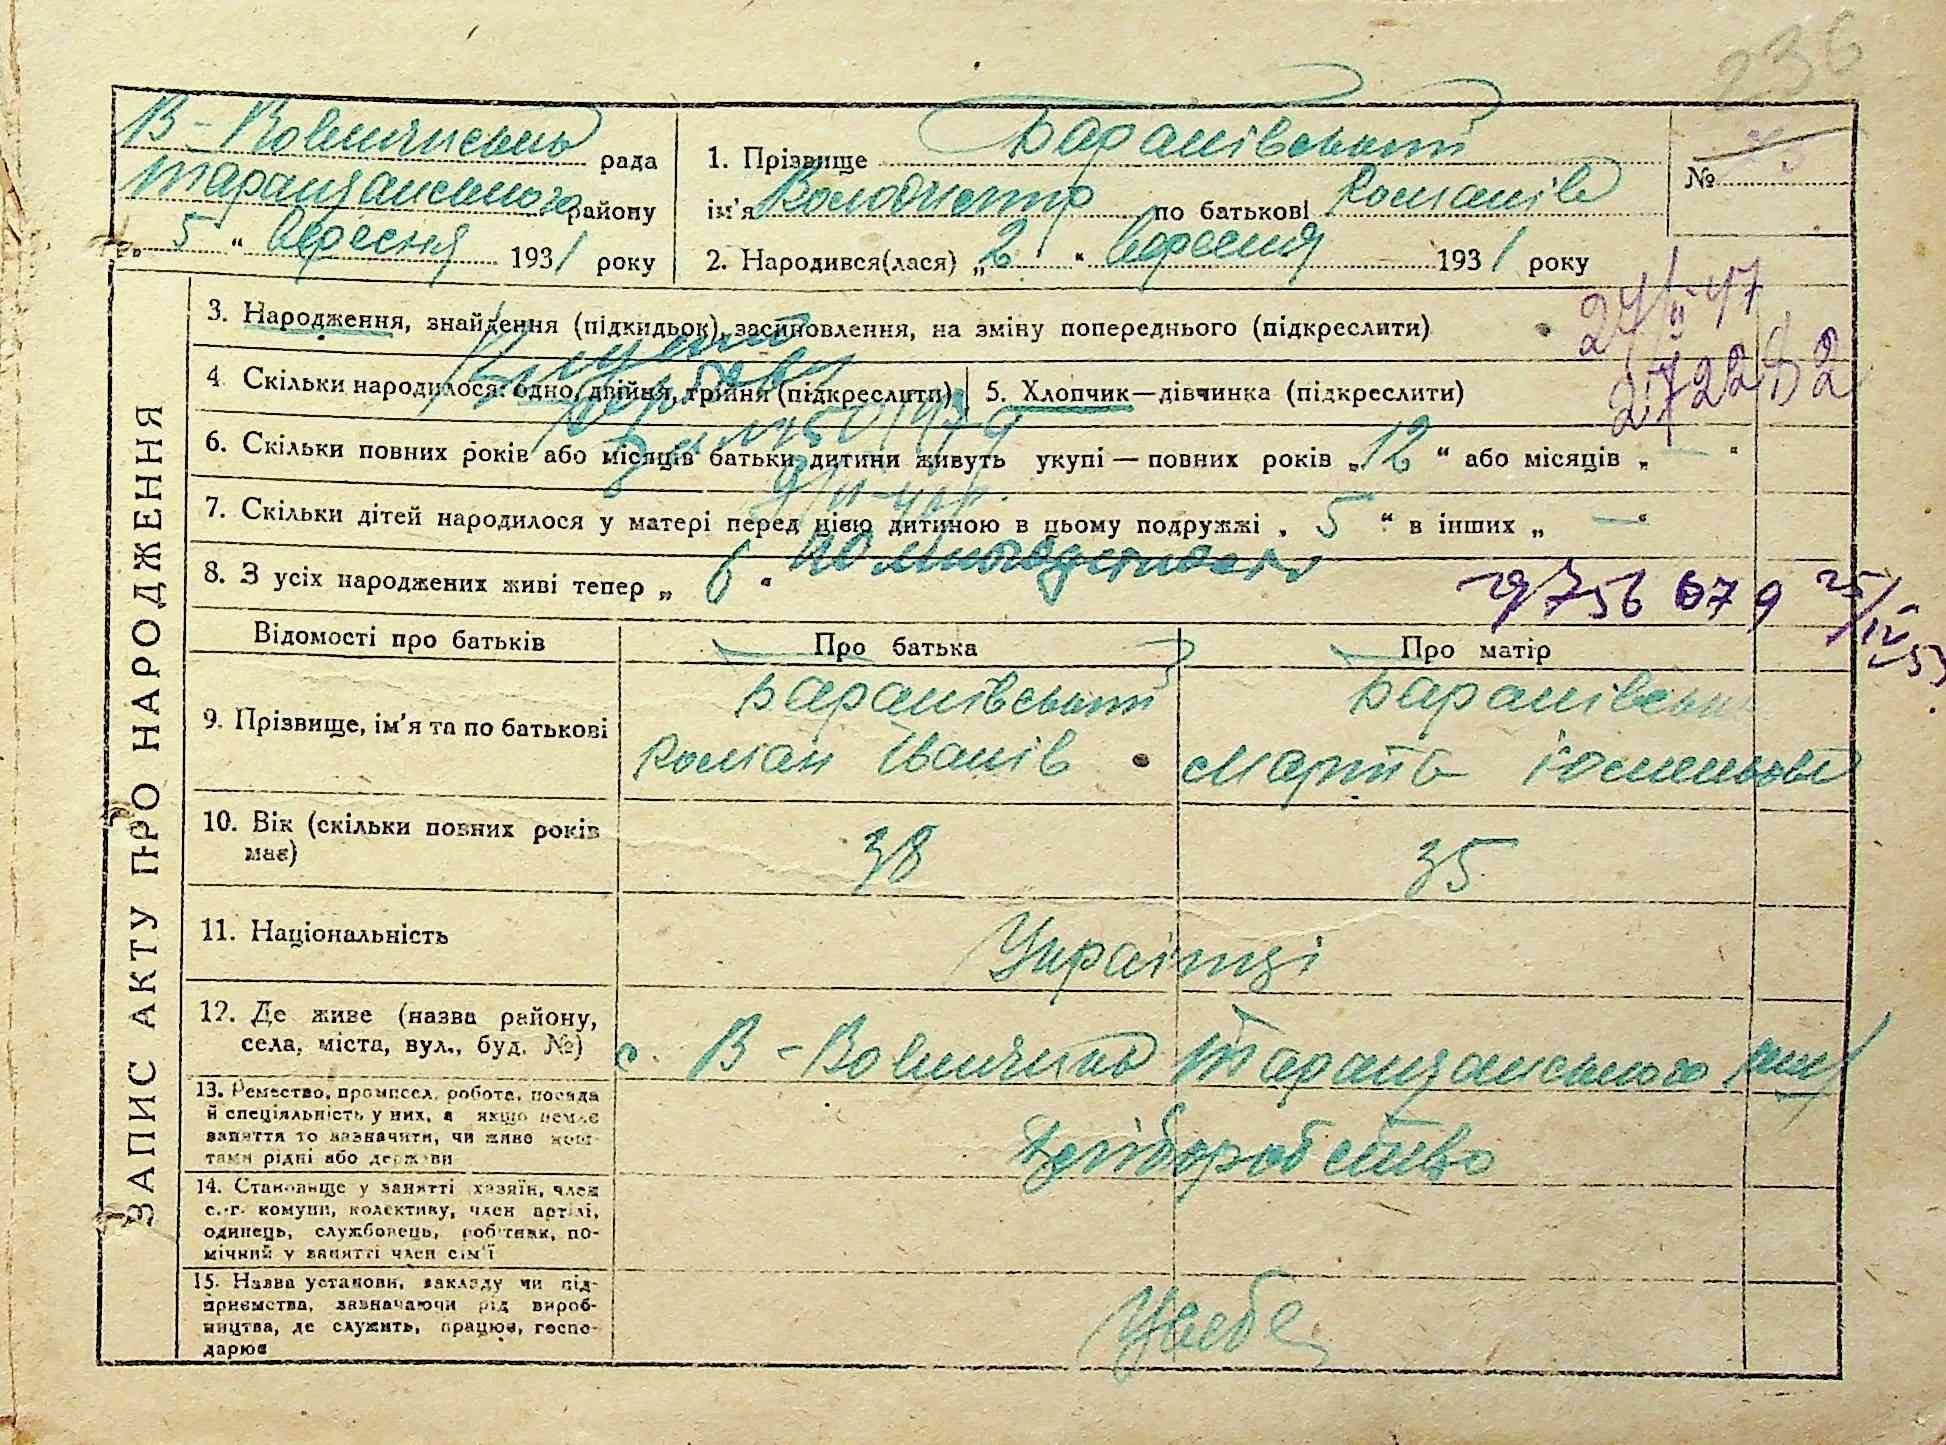 236
В-Вовничисько рада
Таращанського району
„ 5 “ вересня 1931 року
1. Прізвище Баранівський
ім'я Володимир по батькові Романів
2. Народився(лася) „ 2 “ вересня 1931 року
№
ЗАПИС АКТУ ПРО НАРОДЖЕННЯ
3. Народження, знайдення (підкидьок), засиновлення, на зміну попереднього (підкреслити)
4 Скільки народилося: одно, двійня, трійня (підкреслити)
5. Хлопчик—дівчинка (підкреслити)
6. Скільки повних років або місяців батьки дитини живуть укупі — повних років „ 12 “ або місяців „ — “
7. Скільки дітей народилося у матері перед цією дитиною в цьому подружжі „ 5 “ в інших „ — “
по многодетности
8. З усіх народжених живі тепер „ 6 “
Відомості про батьків
Про батька
Про матір
9. Прізвище, ім'я та по батькові
Баранівський
Роман Іванів
Баранівська
Марта
10. Вік (скільки повних років має)
38
35
11. Національність
Українці
12. Де живе (назва району,
села, міста, вул., буд. №)
с. В-Вовничик Таращанського
13. Ремество, промисел, робота, посада
й спеціяльність у них, а якщо немає
заняття то зазначити, чи живе кош-
тами рідні або держави
Хліборобство
14. Становище у занятті хазяїн, член
с.-г. комуни, колективу, член артілі,
одинець, службовець, робітник, по-
мічний у занятті член сім'ї
15. Назва установи, закладу чи під-
приємства, зазначаючи рід вироб-
ництва, де служить, працює, госпо-
дарює
У себе